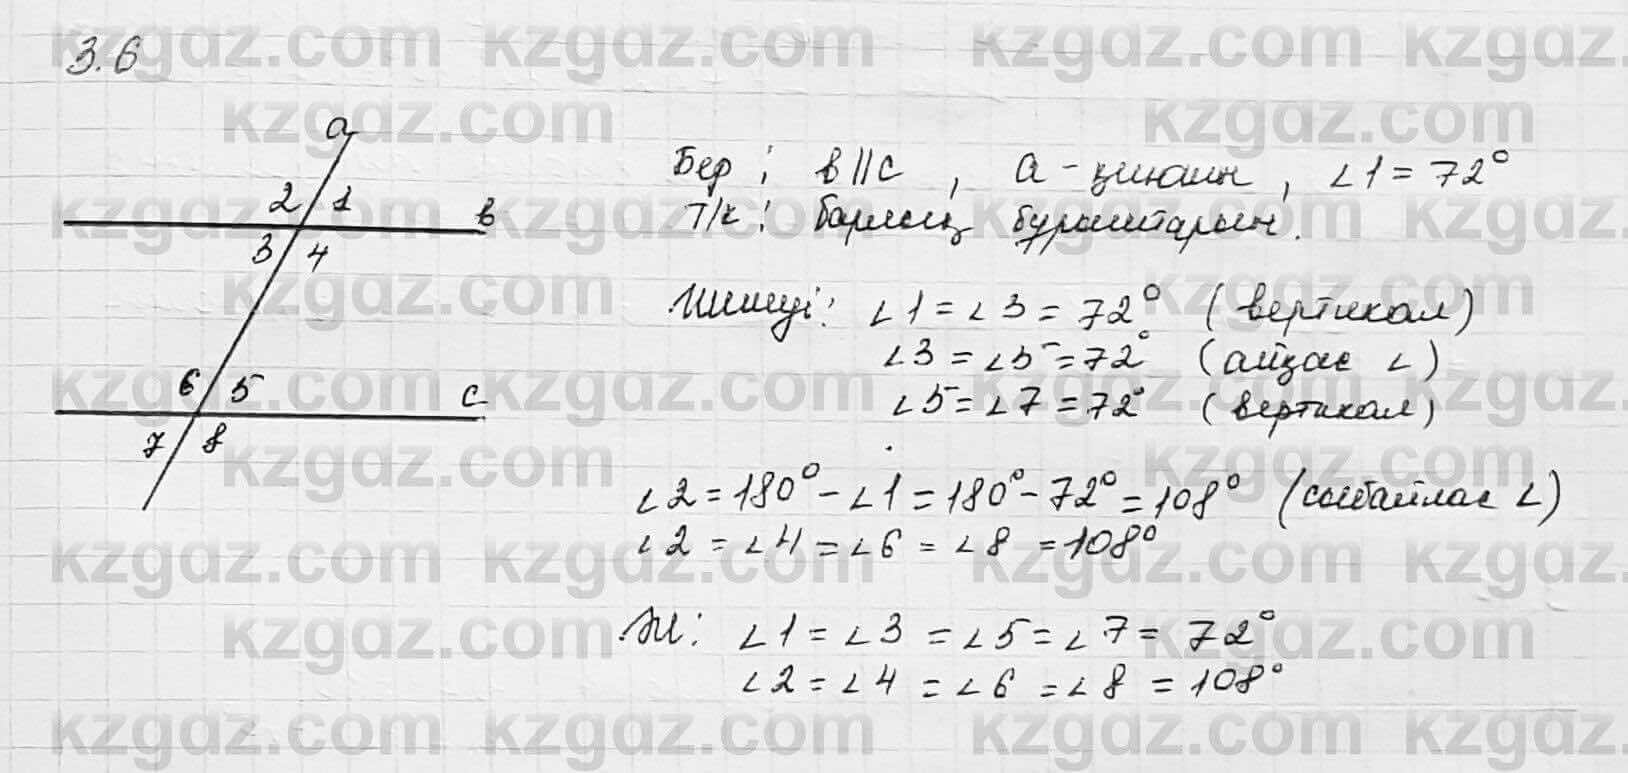 3.6
a
2 1
в
3 4
6 5
c
7 8
Бер: в||с, а - қиюшы, ∠1 = 72°
Т/к: барлық бұрыштарын.
Шешуі: ∠1 = ∠3 = 72° (вертикал)
∠3 = ∠5 = 72° (айқас ∠)
∠5 = ∠7 = 72° (вертикал)
∠2 = 180° - ∠1 = 180° - 72° = 108° (сыбайлас ∠)
∠2 = ∠4 = ∠6 = ∠8 = 108°
Ж: ∠1 = ∠3 = ∠5 = ∠7 = 72°
∠2 = ∠4 = ∠6 = ∠8 = 108°
kzgdz.com